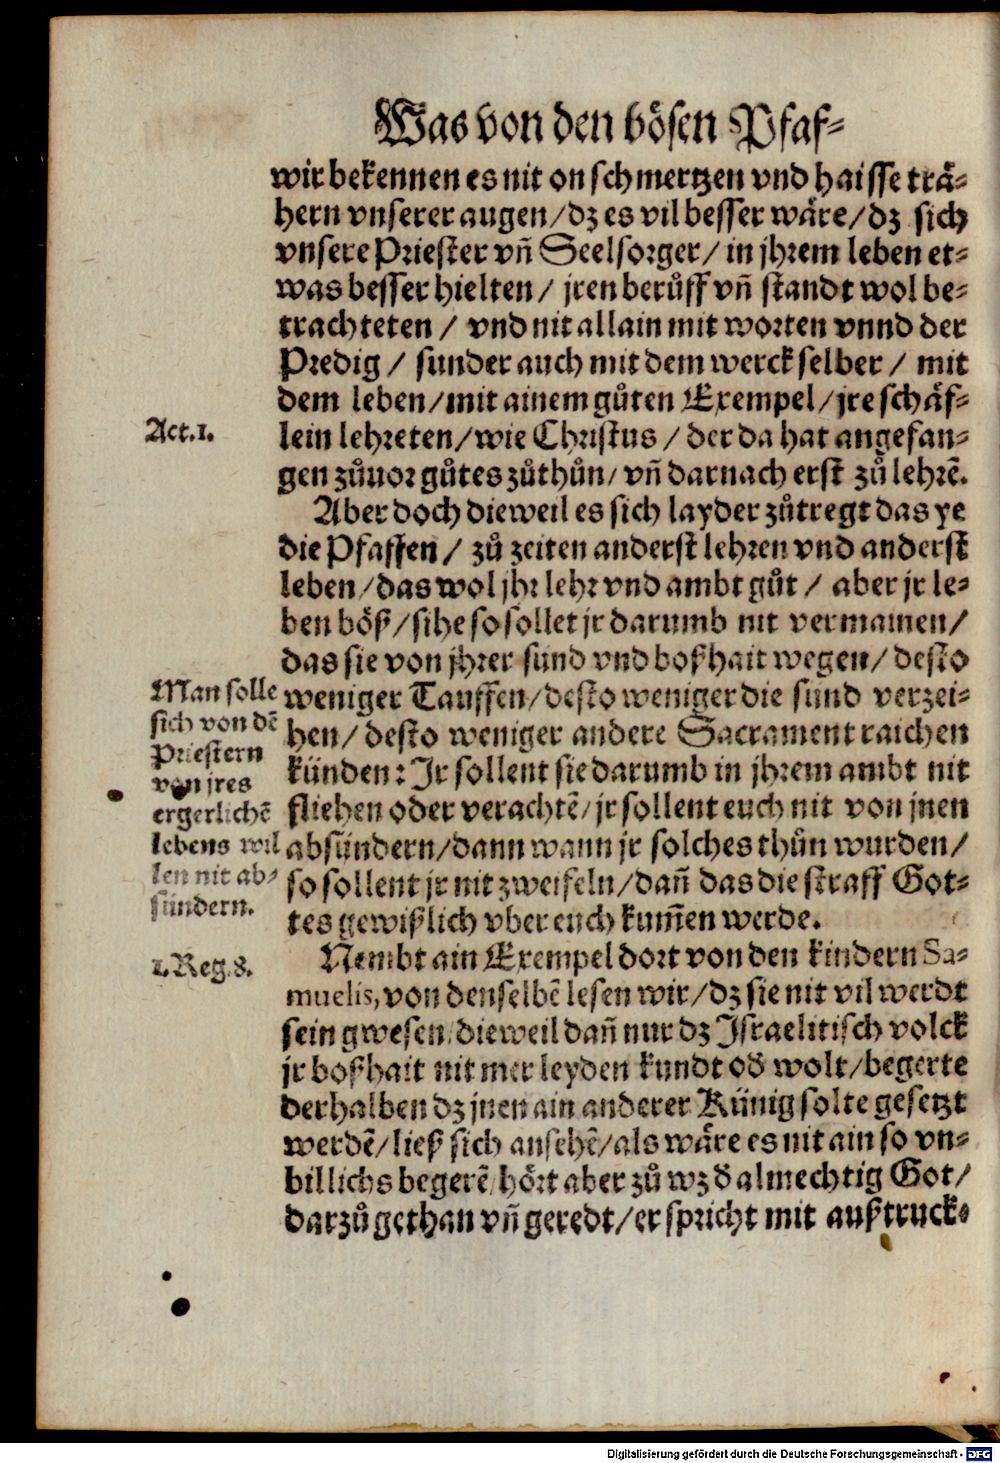 Was von den bösen Pfaf⸗
wir bekennen es nit on schmertzen vnd haisse trä⸗
hern vnserer augen/dz es vil besser wäre/dz sich
vnsere Priester vñ Seelsorger/ in jhrem leben et⸗
was besser hielten/ jren berůff vñ standt wol be⸗
trachteten / vnd nit allain mit worten vnnd der
Predig / sunder auch mit dem werck selber / mit
dem leben/mit ainem gůten Exempel/jre schäf⸗
Act.1.
lein lehreten/wie Christus / der da hat angefan⸗
gen zůuor gůtes zůthůn/ vñ darnach erst zů lehrẽ.
Aber doch dieweil es sich layder zůtregt das ye
die Pfaffen / zů zeiten anderst lehren vnd anderst
leben/das wol jhr lehr vnd ambt gůt / aber jr le⸗
ben böß/sihe so sollet jr darumb nit vermainen/
das sie von jhrer sünd vnd boßhait wegen/ desto
weniger Tauffen/desto weniger die sünd verzei⸗
hen/ desto weniger andere Sacrament raichen
künden: Jr sollent sie darumb in jhrem ambt nit
fliehen oder verachtẽ/jr sollent euch nit von jnen
absündern/dann wann jr solches thůn wurden/
so sollent jr nit zweifeln/dañ das die straff Got⸗
tes gewißlich vber euch kum̃en werde.
Man solle
sich von dẽ
Priestern
von jres
ergerlichẽ
lebens wil
len nit ab⸗
sündern.
1.Reg.8.
Nembt ain Exempel dort von den kindern Sa⸗
muelis, von denselbẽ lesen wir/dz sie nit vil werdt
sein gwesen/dieweil dañ nur dz Israelitisch volck
jr boßhait nit mer leyden kundt oď wolt/begerte
derhalben dz jnen ain anderer Künig solte gesetzt
werdẽ/ließ sich ansehẽ/als wäre es nit ain so vn⸗
billichs begerẽ/hört aber zů wz ď almechtig Got/
darzů gethan vñ geredt/er spricht mit außtruck⸗
Digitalisierung gefördert durch die Deutsche Forschungsgemeinschaft - DFG